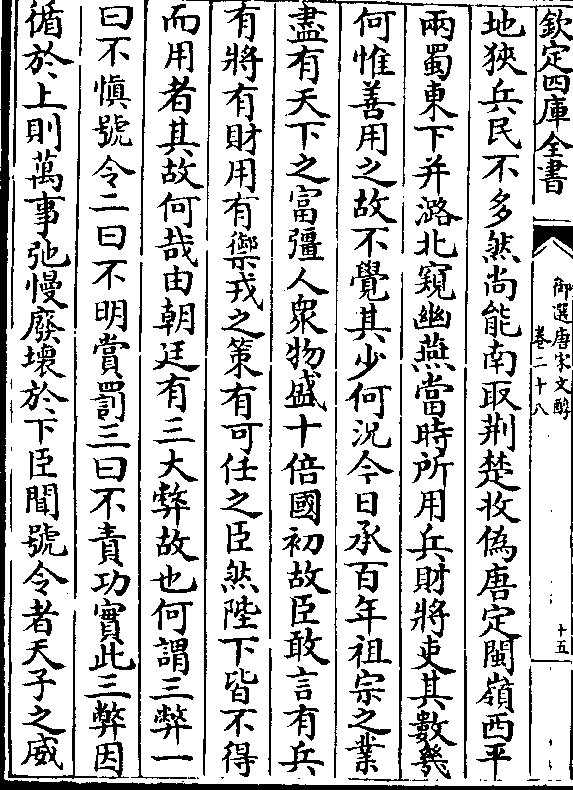 欽定四庫全書
御選唐宋文醇
卷二十八
十五
地狹兵民不多然尚能南取荆楚收偽唐定閩嶺西平
兩蜀東下并潞北窺幽燕當時所用兵財將吏其數㡬
何惟善用之故不覺其少何況今日承百年祖宗之業
盡有天下之富彊人衆物盛十倍國初故臣敢言有兵
有將有財用有禦戎之策有可任之臣然陛下皆不得
而用者其故何哉由朝廷有三大弊故也何謂三弊一
曰不慎號令二曰不明賞罰三曰不責功實此三弊因
循於上則萬事弛慢廢壞於下臣聞號令者天子之威